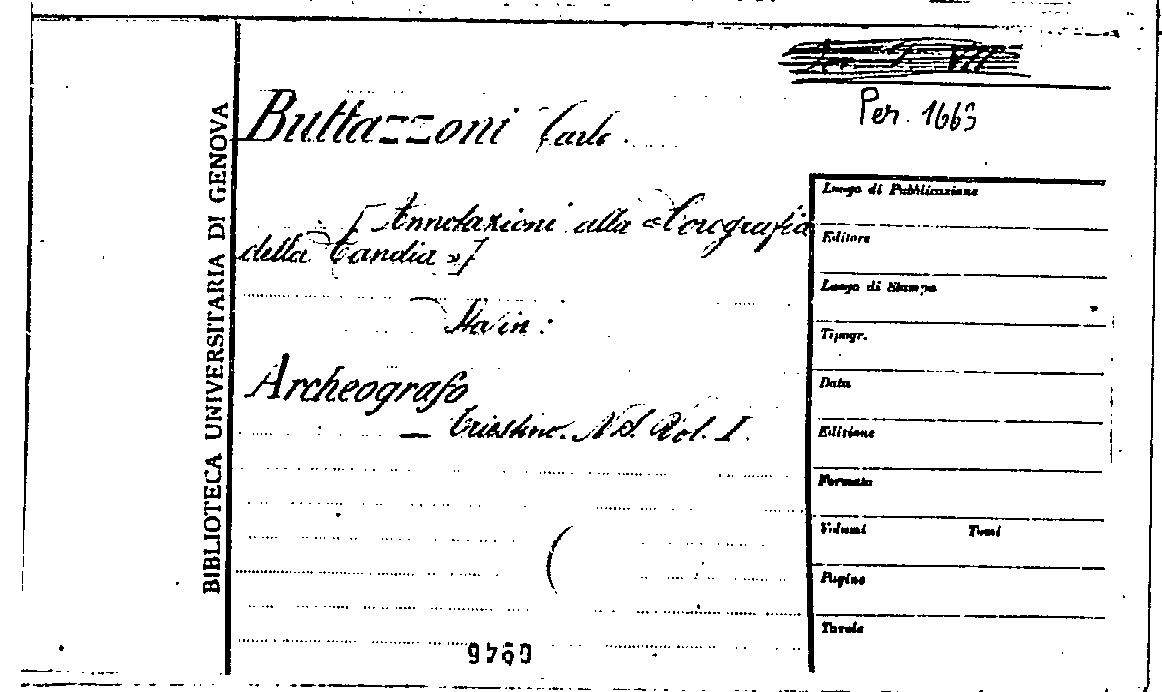 BIBLIOTECA UNIVERSITARIA DI GENOVA
Per. 1663
Buttazzoni Carlo.
[Annotazioni alla «Corografia
della Candia»]
Sta in:
Archeografo
— Triestino. N.S. Vol. I.
Luogo di Pubblicazione
Editore
Luogo di Stampa
Tipogr.
Data
Edizione
Formato
Volumi Tomi
Pagine
Tavole